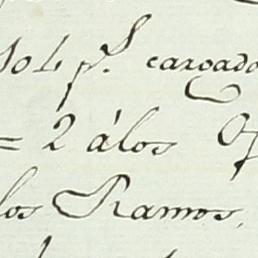 504 p.s cargado
= 2 álos
los Ramos,